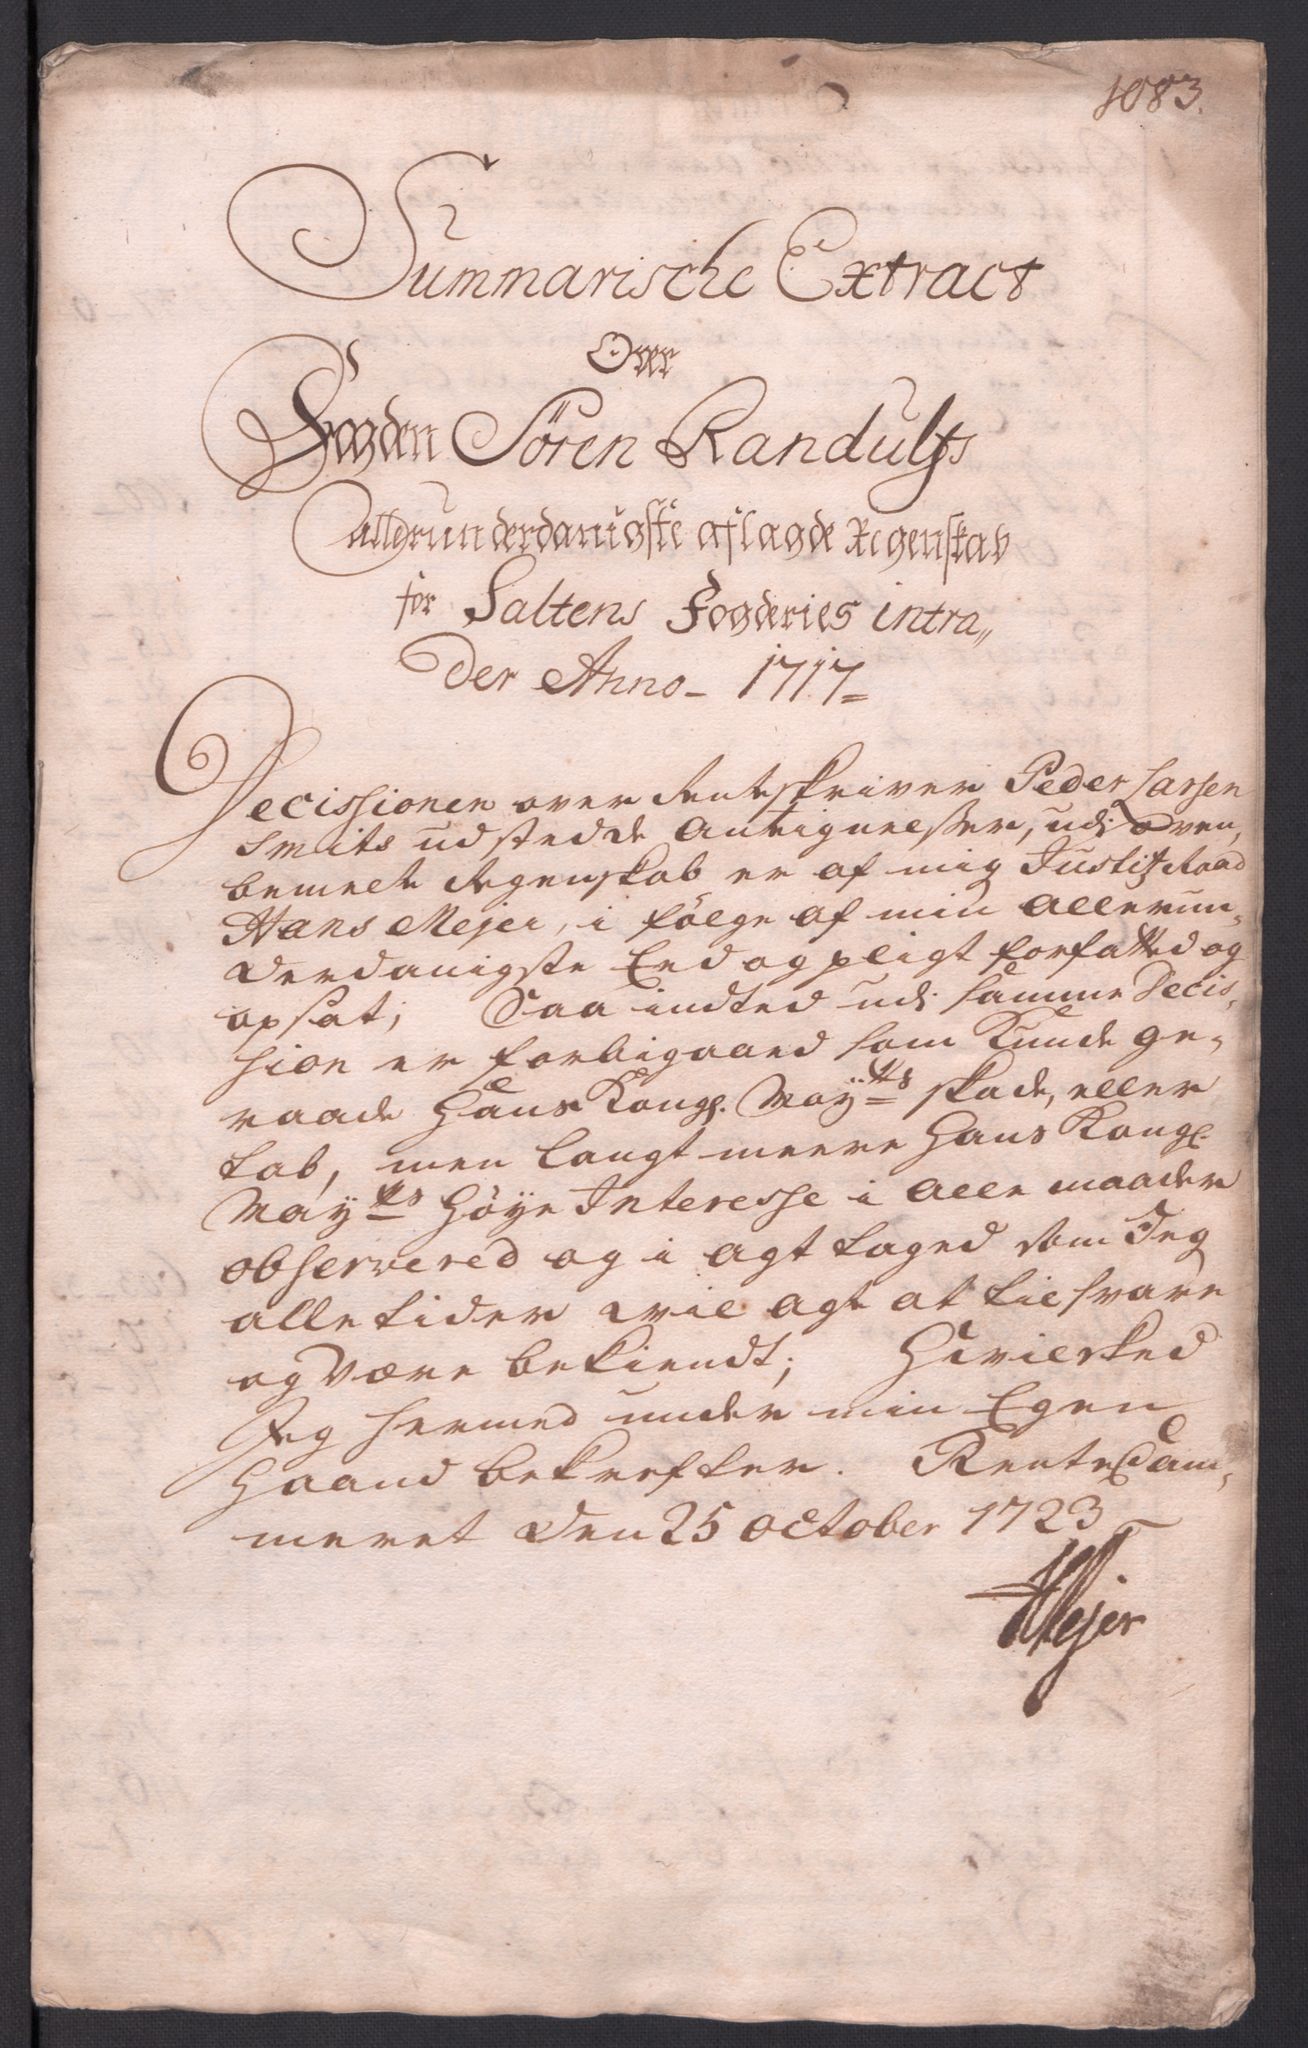 1083.
Summarische Extract
Over
Fogden Sören Randulfs
Allerunderdanigste aflagde Regenskab
for Saltens Fogderies intra„
der Anno - 1717=
Decissionen over Renteskriver Peder Larsen
Smits udstedde Antegnelsser, udi oven,
bemelte Regenskab er af mig Justitz Raad
Hans Mejer, i følge af min allerun„
derdanigste Eed og pligt forfatted og
opsat; Saa indted udi samme Decis„
sion er forbigaaed som kunde ge„
raade Hans Kongl. Mayts skade, eller
tab, men langt meere Hans Kongl.
Mayts Høye Interesse i alle maader
observered og i agt taged som Jeg
alletider vil agte at tilsvare
og være bekiendt; Hvilcked
Jeg hermed under min Egen
Haand bekrefter. RenteCam„
meret den 25 october 1723
HMejer